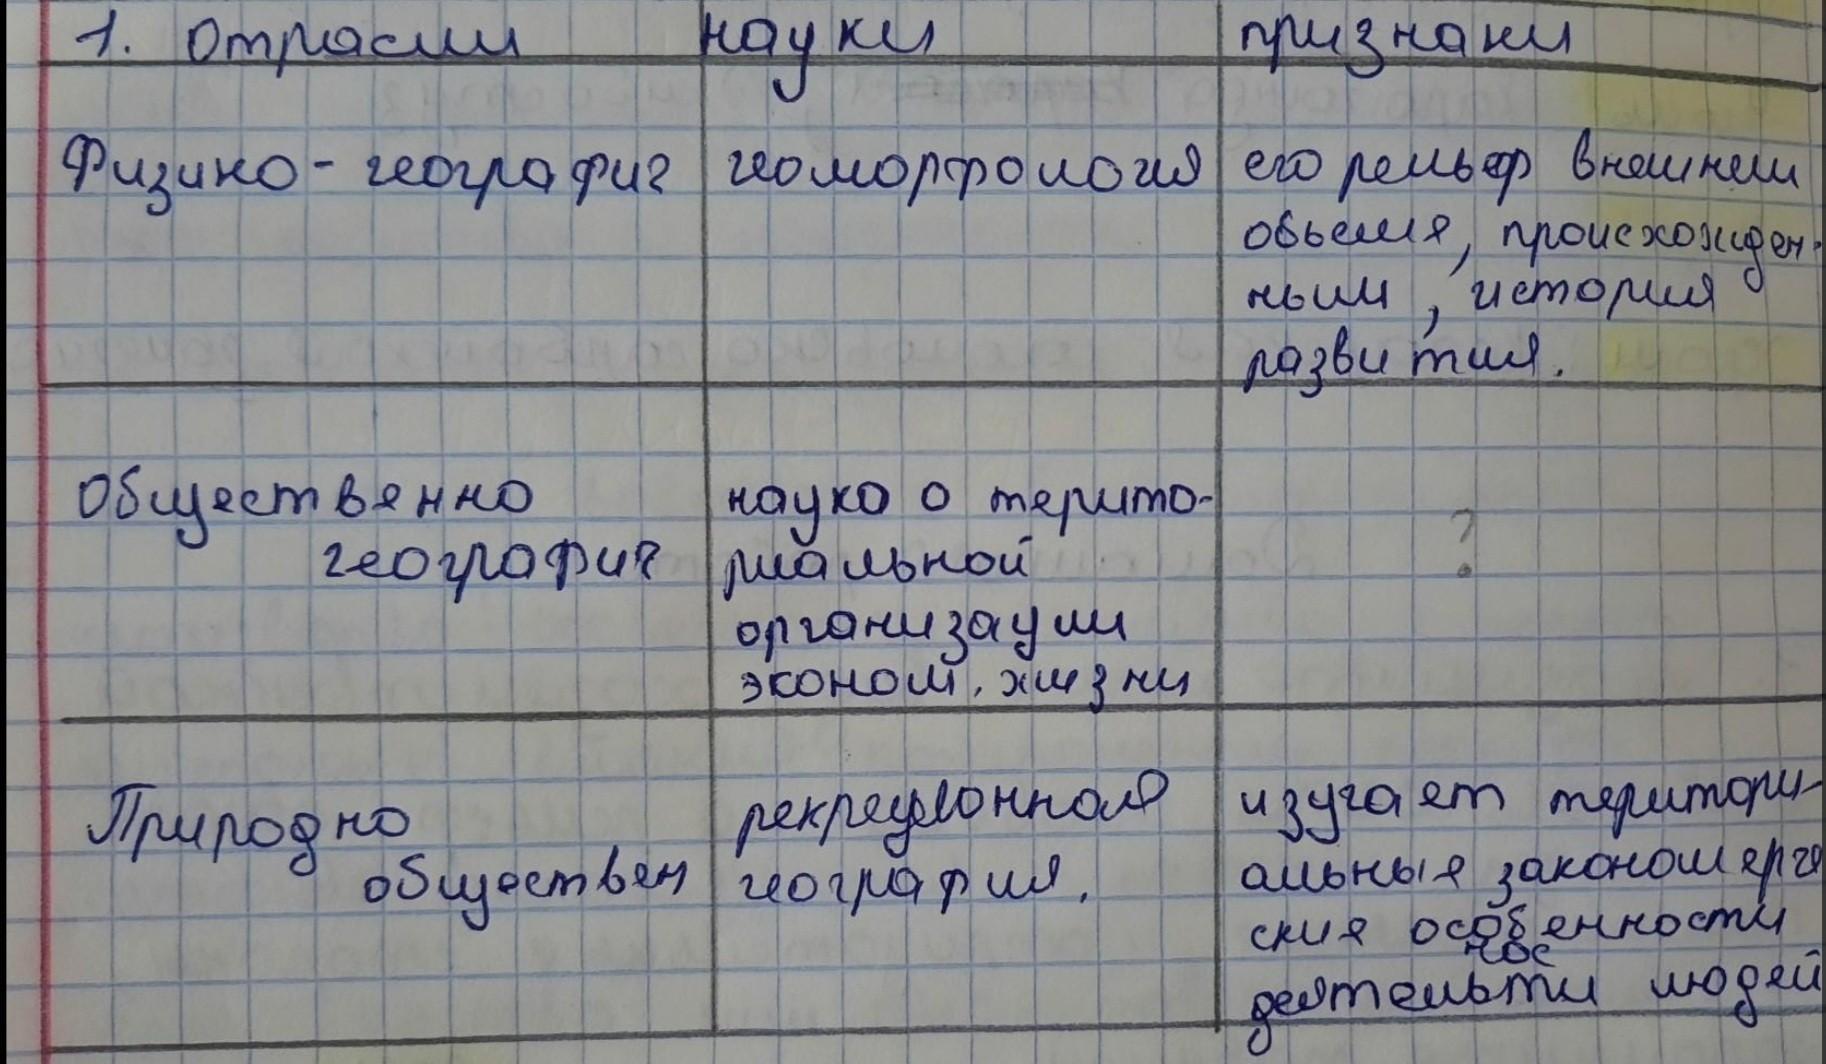 1. Отрасли науки признаки
Физико-географич геоморфология его рельеф внешнем
обьемя, происхожден-
ным, история
развития.
Общественно
географич
наука о терито-
риальной
организации
эконом. жизни
?
Природно
обществен
рекреционная
география.
изучает територи-
альные закономерге
ские особенности
нос
деятельти людей